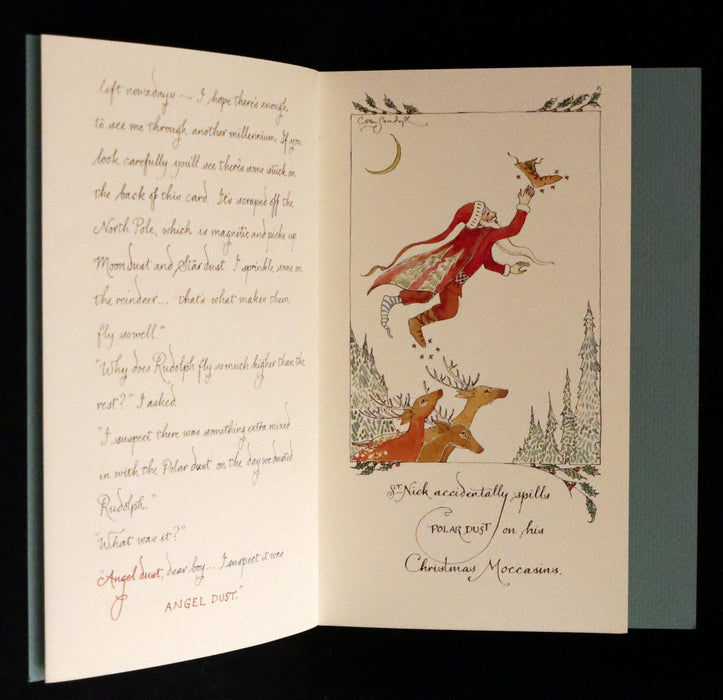 left nowadays — I hope there's enough
to see me through another millennium. If you
look carefully you'll see there's some stuck on
the back of this card. It's scraped off the
North Pole, which is magnetic and picks up
Moondust and Stardust. I sprinkle some on
the reindeer... that's what makes them
fly so well."
"Why does Rudolph fly so much higher than the
rest?" I asked.
"I suspect there was something extra mixed
in with the Polar dust on the day we dusted
Rudolph."
"What was it?"
"Angel dust, dear boy... I suspect it was
ANGEL DUST."
St. Nick accidentally spills
POLAR DUST on his
Christmas Moccasins.